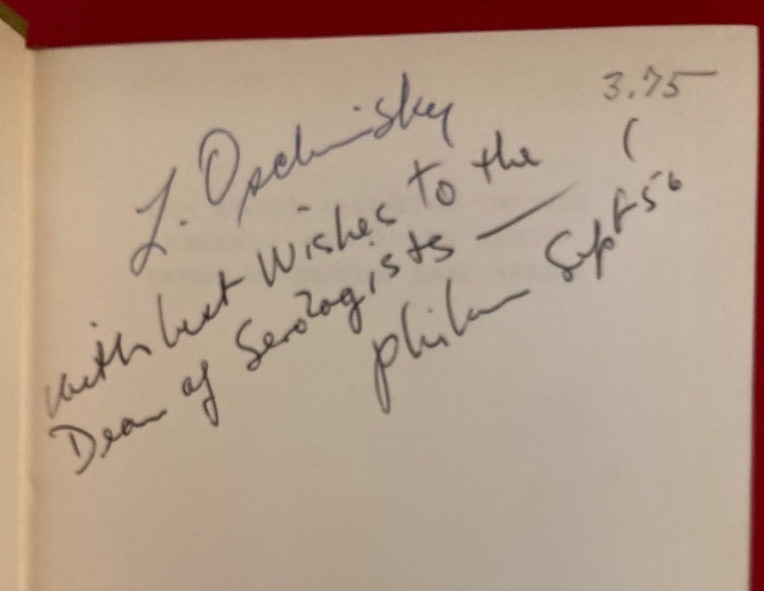 3.75
L. Oschinsky
with best Wishes to the
Dean of Serologists —
Sept 56